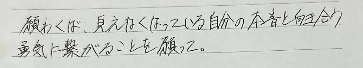 願わくば、見えなくなっている自分の本音と向き合う
勇気に繋がることを願って。